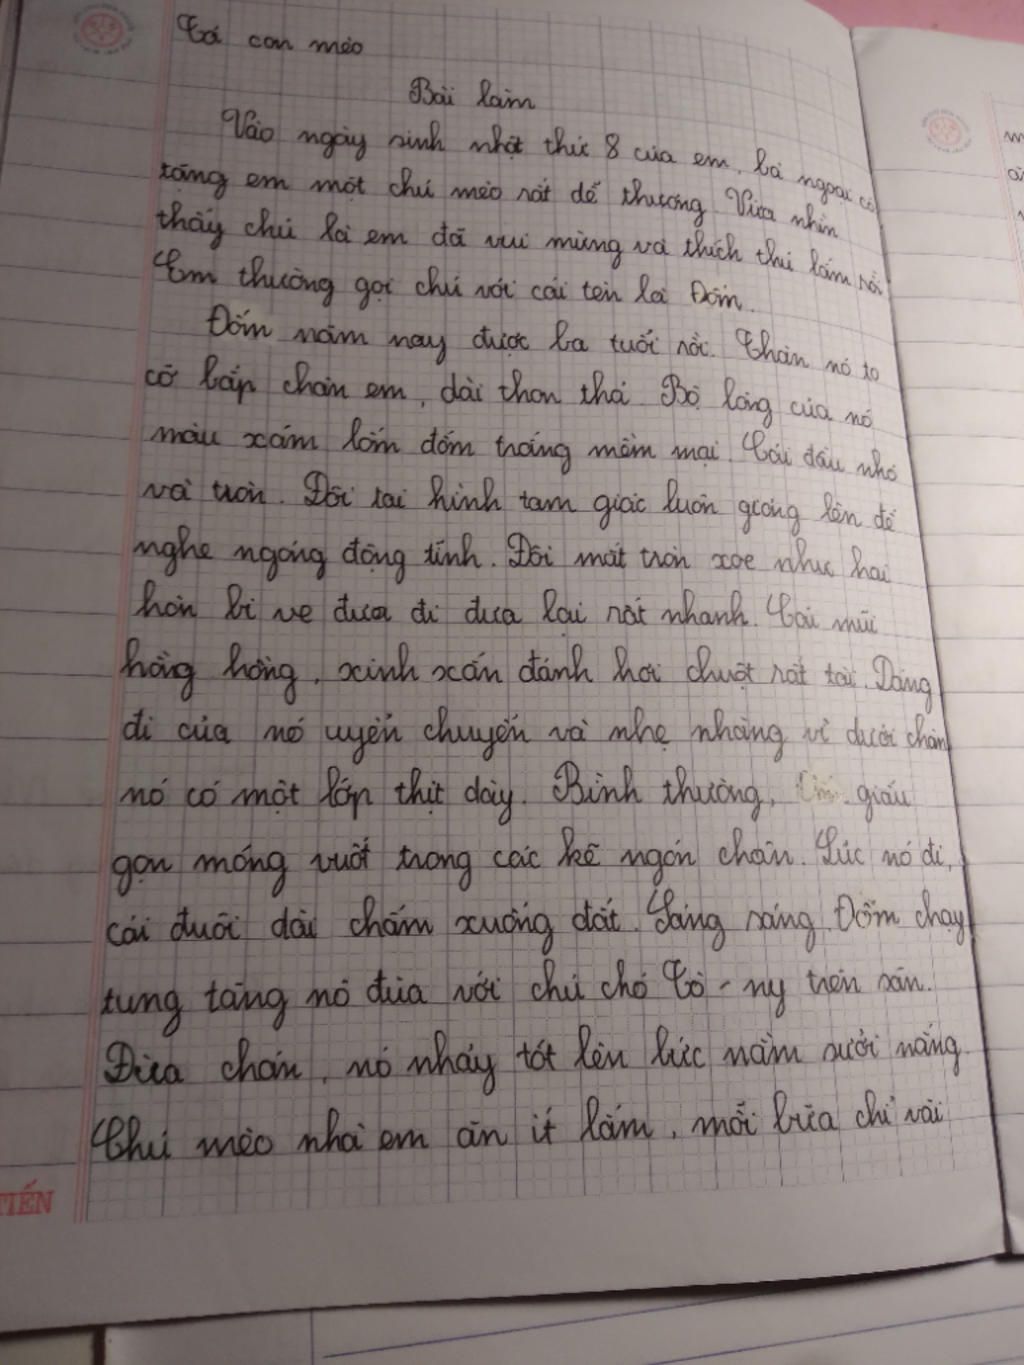 Tả con mèo
Bài làm
Vào ngày sinh nhật thứ 8 của em, bà ngoại có
tặng em một chú mèo rất dễ thương. Vừa nhìn
thấy chú là em đã vui mừng và thích thú lắm rồi
Em thường gọi chú với cái tên là Đốm.
Đốm năm nay được ba tuổi rồi. Thân nó to
cỡ bắp chân em, dài thon thả. Bộ lông của nó
màu xám lốm đốm trắng mềm mại. Cái đầu nhỏ
và tròn. Đôi tai hình tam giác luôn giương lên để
nghe ngóng động tĩnh. Đôi mắt tròn xoe như hai
hòn bi ve đưa đi đưa lại rất nhanh. Cái mũi
hồng hồng, xinh xắn đánh hơi chuột rất tài. Dáng
đi của nó uyển chuyển và nhẹ nhàng vì dưới chân
nó có một lớp thịt dày. Bình thường, giấu
gọn móng vuốt trong các kẽ ngón chân. Lúc nó đi,
cái đuôi dài chấm xuống đất. Sáng sáng, Đốm chạy
tung tăng nô đùa với chú chó Tô - ny trên sân.
Đùa chán, nó nhảy tót lên bức nằm sưởi nắng.
Chú mèo nhà em ăn ít lắm, mỗi bữa chỉ vài
TIẾN